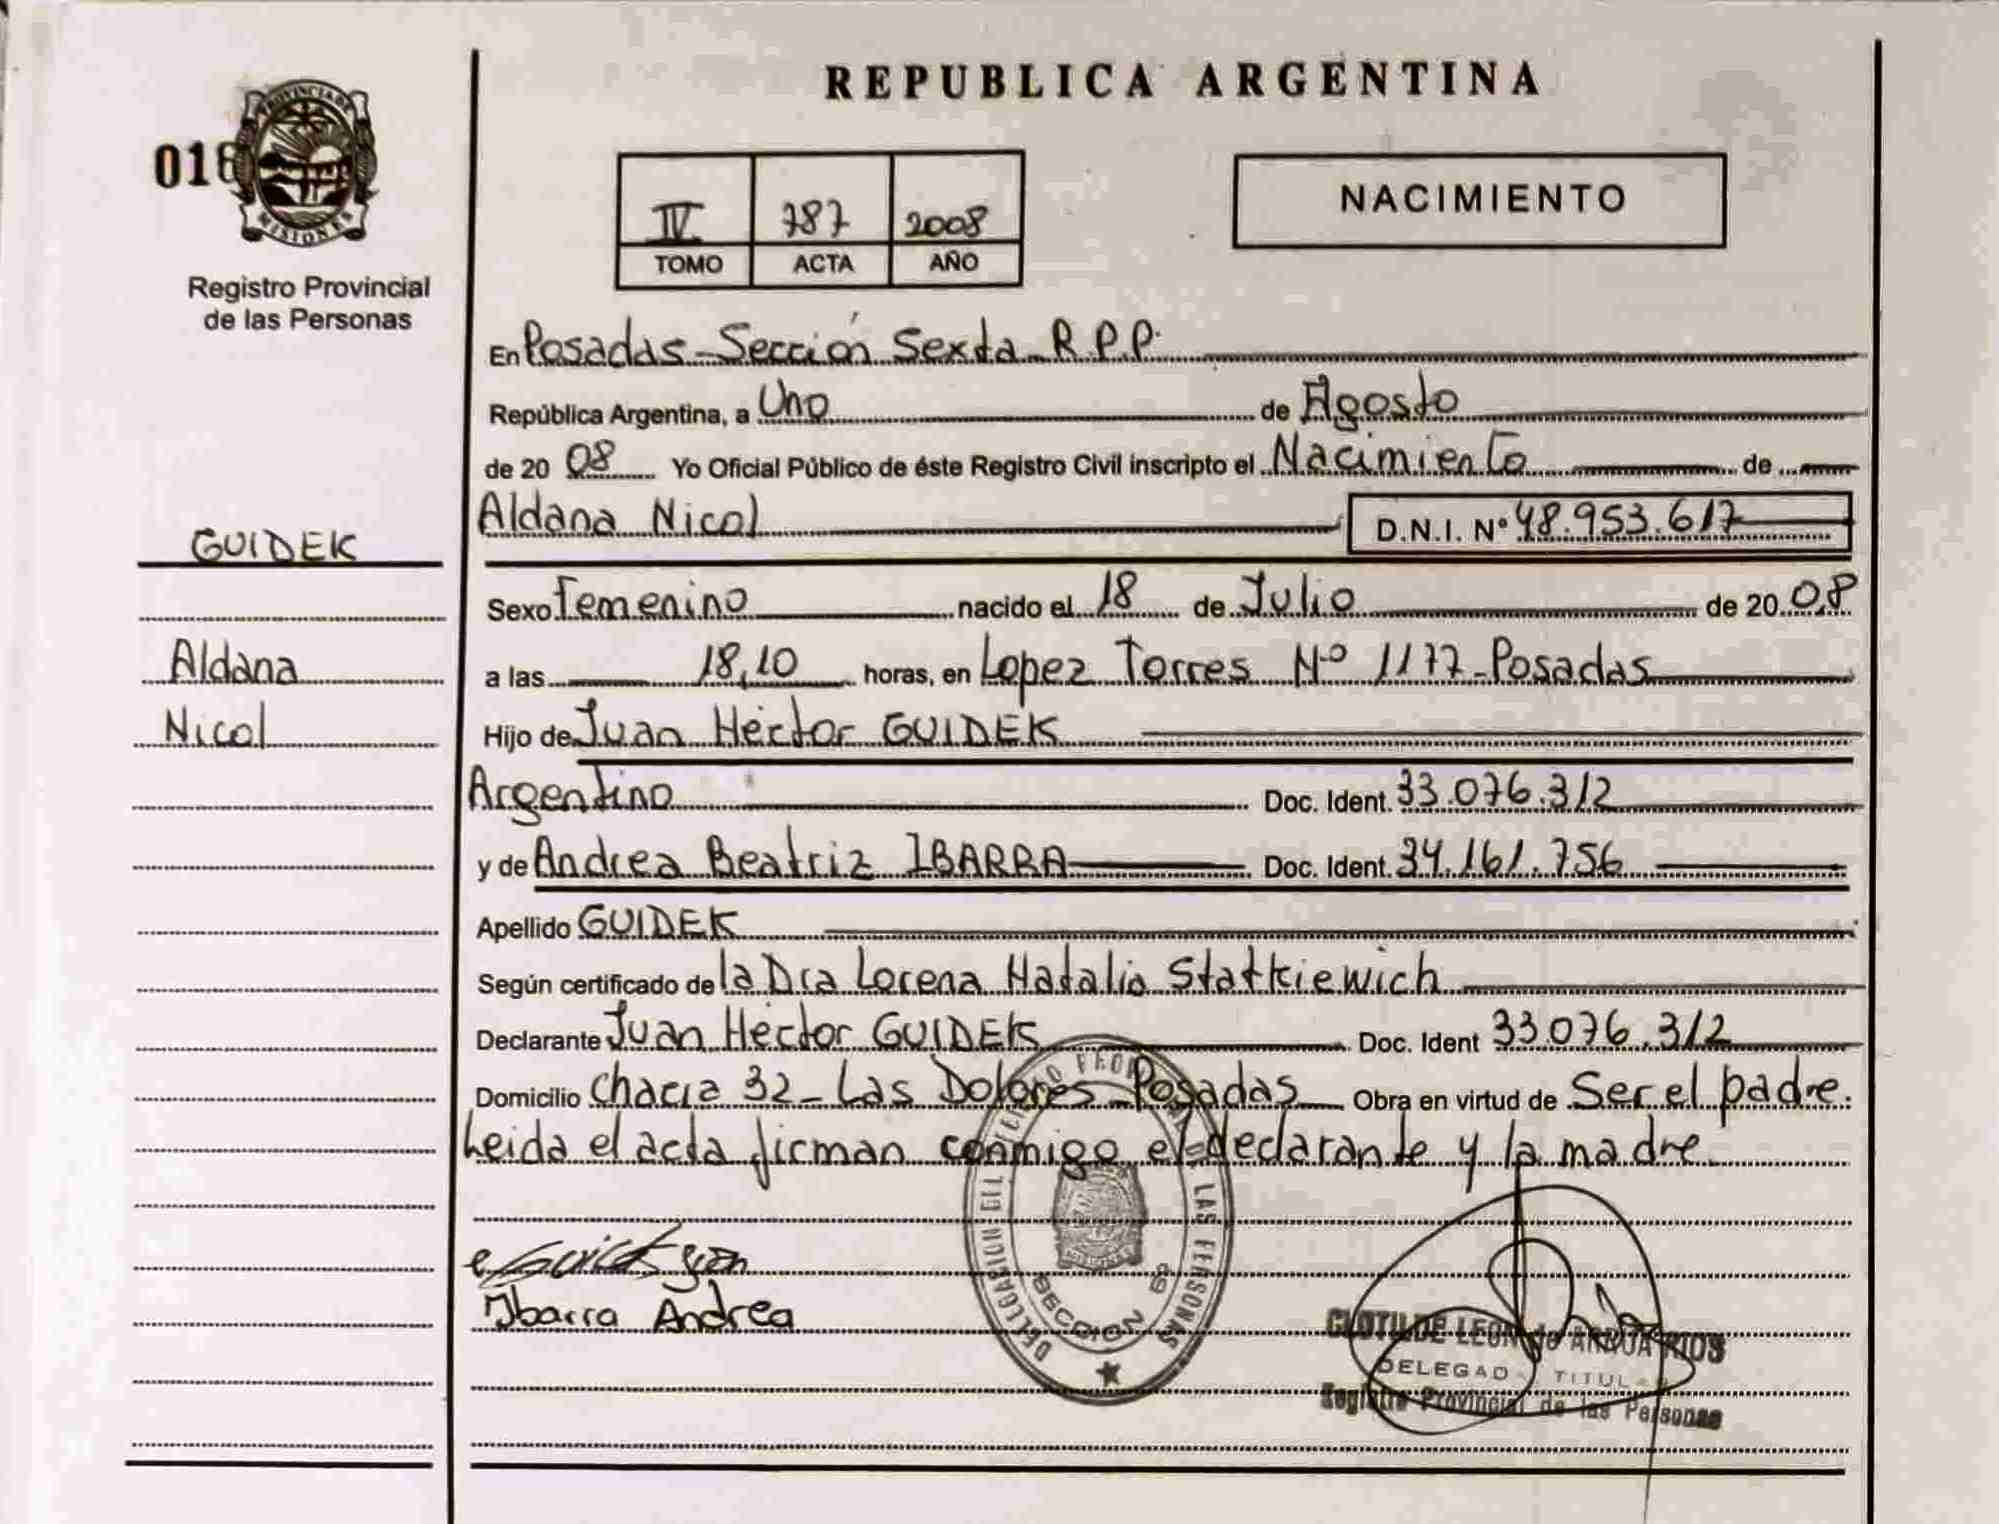 REPUBLICA ARGENTINA
PROVINCIA DE
MISIONES
Registro Provincial
de las Personas
IV 787 2008
TOMO ACTA AÑO
NACIMIENTO
En Posadas - Sección Sexta R.P.P.
República Argentina, a Uno de Agosto
de 2008 Yo Oficial Público de éste Registro Civil inscripto el Nacimiento de
Aldana Nicol D.N.I. Nº 48.953.617
GUIDEK
Aldana
Nicol
Sexo Femenino nacido el 18 de Julio de 2008
a las 18,10 horas, en Lopez Torres Nº 1177 - Posadas
Hijo de Juan Héctor GUIDEK
Argentino Doc. Ident. 33.076.312
y de Andrea Beatriz IBARRA Doc. Ident. 34.161.756
Apellido GUIDEK
Según certificado de la Dra Lorena Natalia Statkiewich
Declarante Juan Héctor GUIDEK Doc. Ident 33.076.312
Domicilio Chacra 32 - Las Dolores - Posadas Obra en virtud de Ser el padre.
Leida el acta firman conmigo el declarante y la madre
Ibarra Andrea
DELEGACION DEL REGISTRO DE LAS PERSONAS
SECCION 6ª
CLOTILDE LEON de ARRUA RIOS
DELEGADA TITULAR
Registro Provincial de las Personas